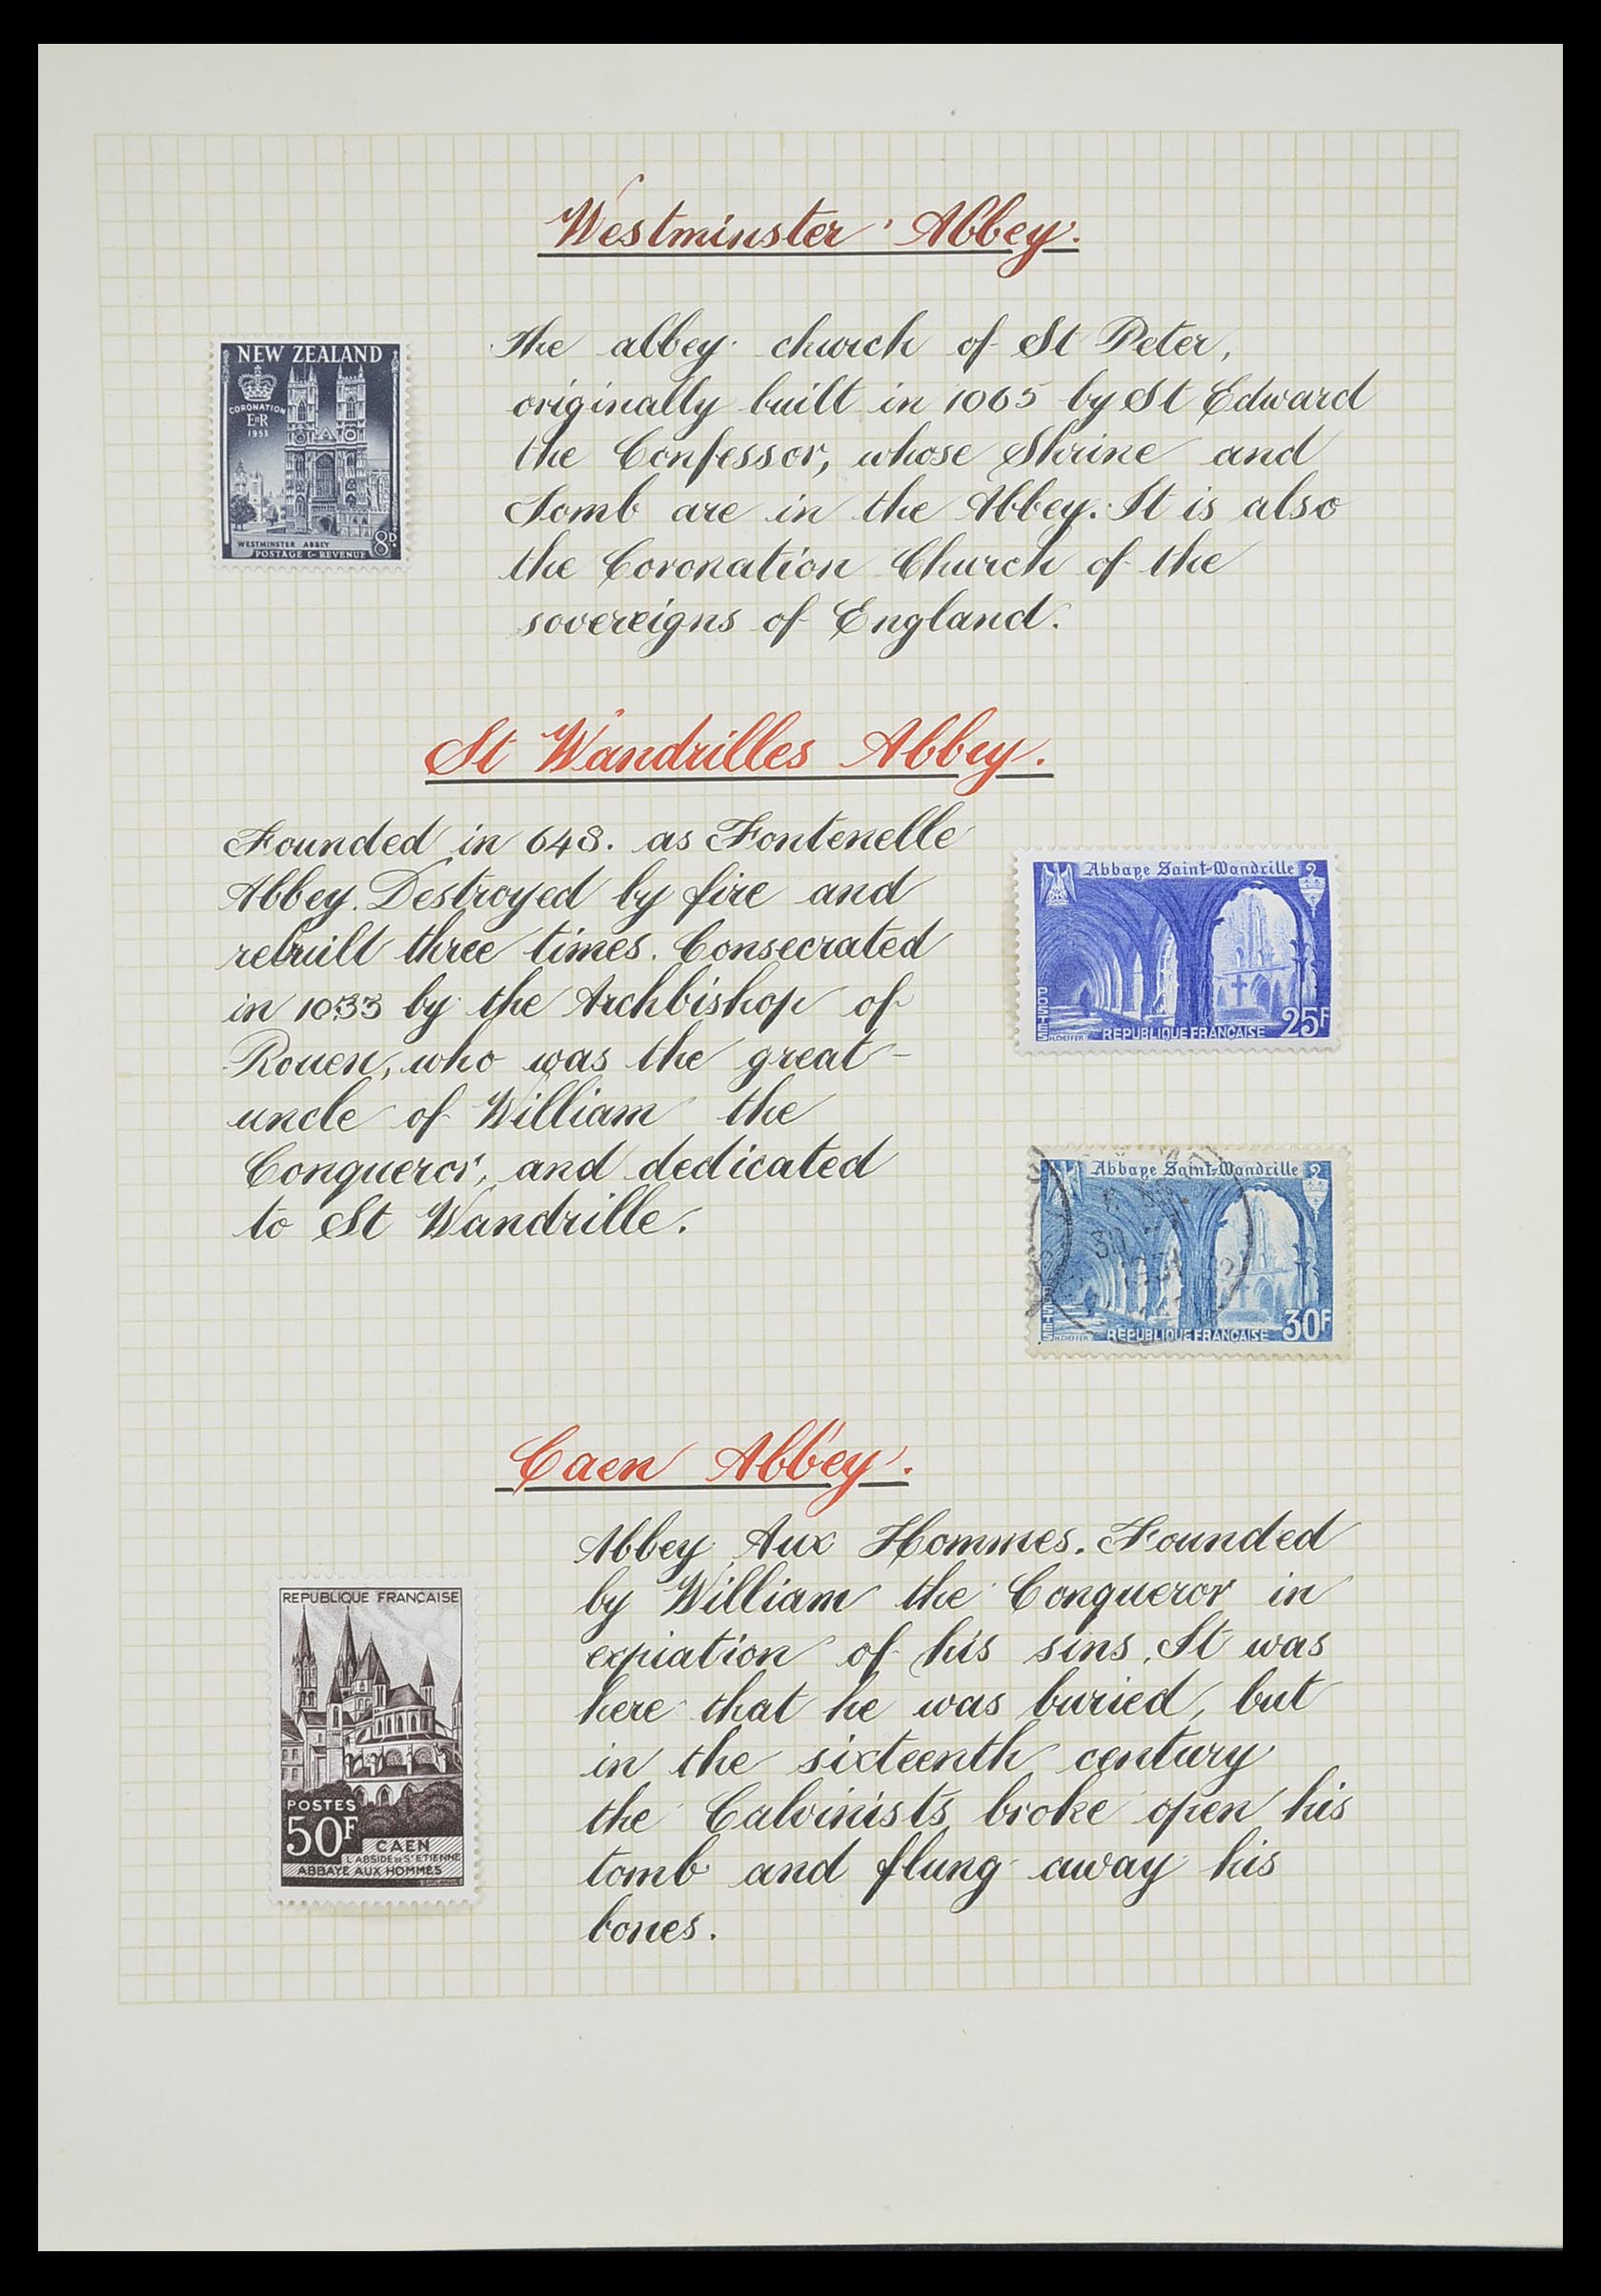 Westminster Abbey.
NEW ZEALAND
CORONATION
E II R
1953
WESTMINSTER ABBEY
POSTAGE & REVENUE
8D
The abbey church of St Peter,
originally built in 1065 by St Edward
the Confessor, whose Shrine and
Tomb are in the Abbey. It is also
the Coronation Church of the
sovereigns of England.
St Wandrilles Abbey.
Founded in 648. as Fontenelle
Abbey. Destroyed by fire and
rebuilt three times. Consecrated
in 1033 by the Archbishop of
Rouen, who was the great-
uncle of William the
Conqueror, and dedicated
to St Wandrille.
Abbaye Saint-Wandrille
POSTES
H.CHEFFER
REPUBLIQUE FRANÇAISE
25F
Abbaye Saint-Wandrille
REPUBLIQUE FRANÇAISE
30F
Caen Abbey.
REPUBLIQUE FRANÇAISE
POSTES
50F
CAEN
L'ABSIDE DE ST ETIENNE
ABBAYE AUX HOMMES
Abbey Aux Hommes. Founded
by William the Conqueror in
expiation of his sins. It was
here that he was buried, but
in the sixteenth century
the Calvinists broke open his
tomb and flung away his
bones.